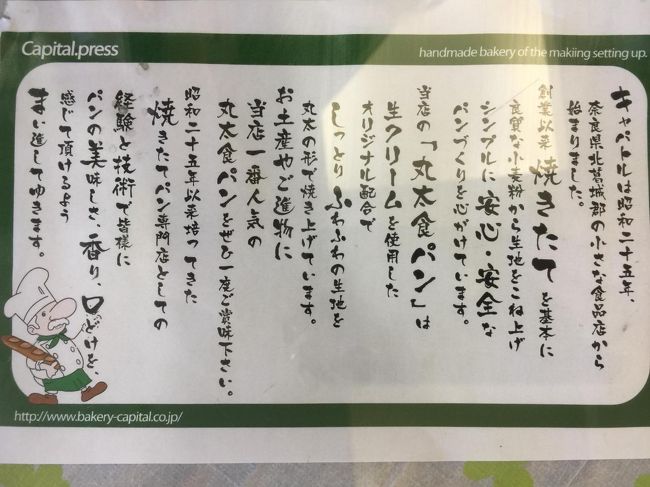 Capital.press
handmade bakery of the makiing setting up.
キャパトルは昭和二十五年、
奈良県北葛城郡の小さな食品店から
始まりました。
創業以来焼きたてを基本に
良質な小麦粉から生地をこね上げ
シンプルに安心・安全な
パンづくりを心がけています。
当店の「丸太食パン」は
生クリームを使用した
オリジナル配合で
しっとりふわふわの生地を
丸太の形で焼き上げています。
お土産やご進物に
当店一番人気の
丸太食パンをぜひ一度ご賞味下さい。
昭和二十五年以来培ってきた
焼きたてパン専門店としての
経験と技術で皆様に
パンの美味しさ、香り、口どけを、
感じて頂けるよう
まい進してゆきます。
http://www.bakery-capital.co.jp/